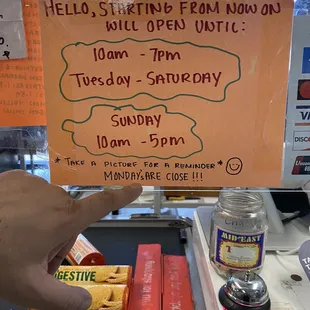 HELLO, STARTING FROM NOW ON
WILL OPEN UNTIL:
10am - 7pm
TUESDAY - SATURDAY
SUNDAY
10am - 5pm
* TAKE A PICTURE FOR A REMINDER *
MONDAYS ARE CLOSE !!!
VISA
DISC
MID EAST
DIGESTIVE